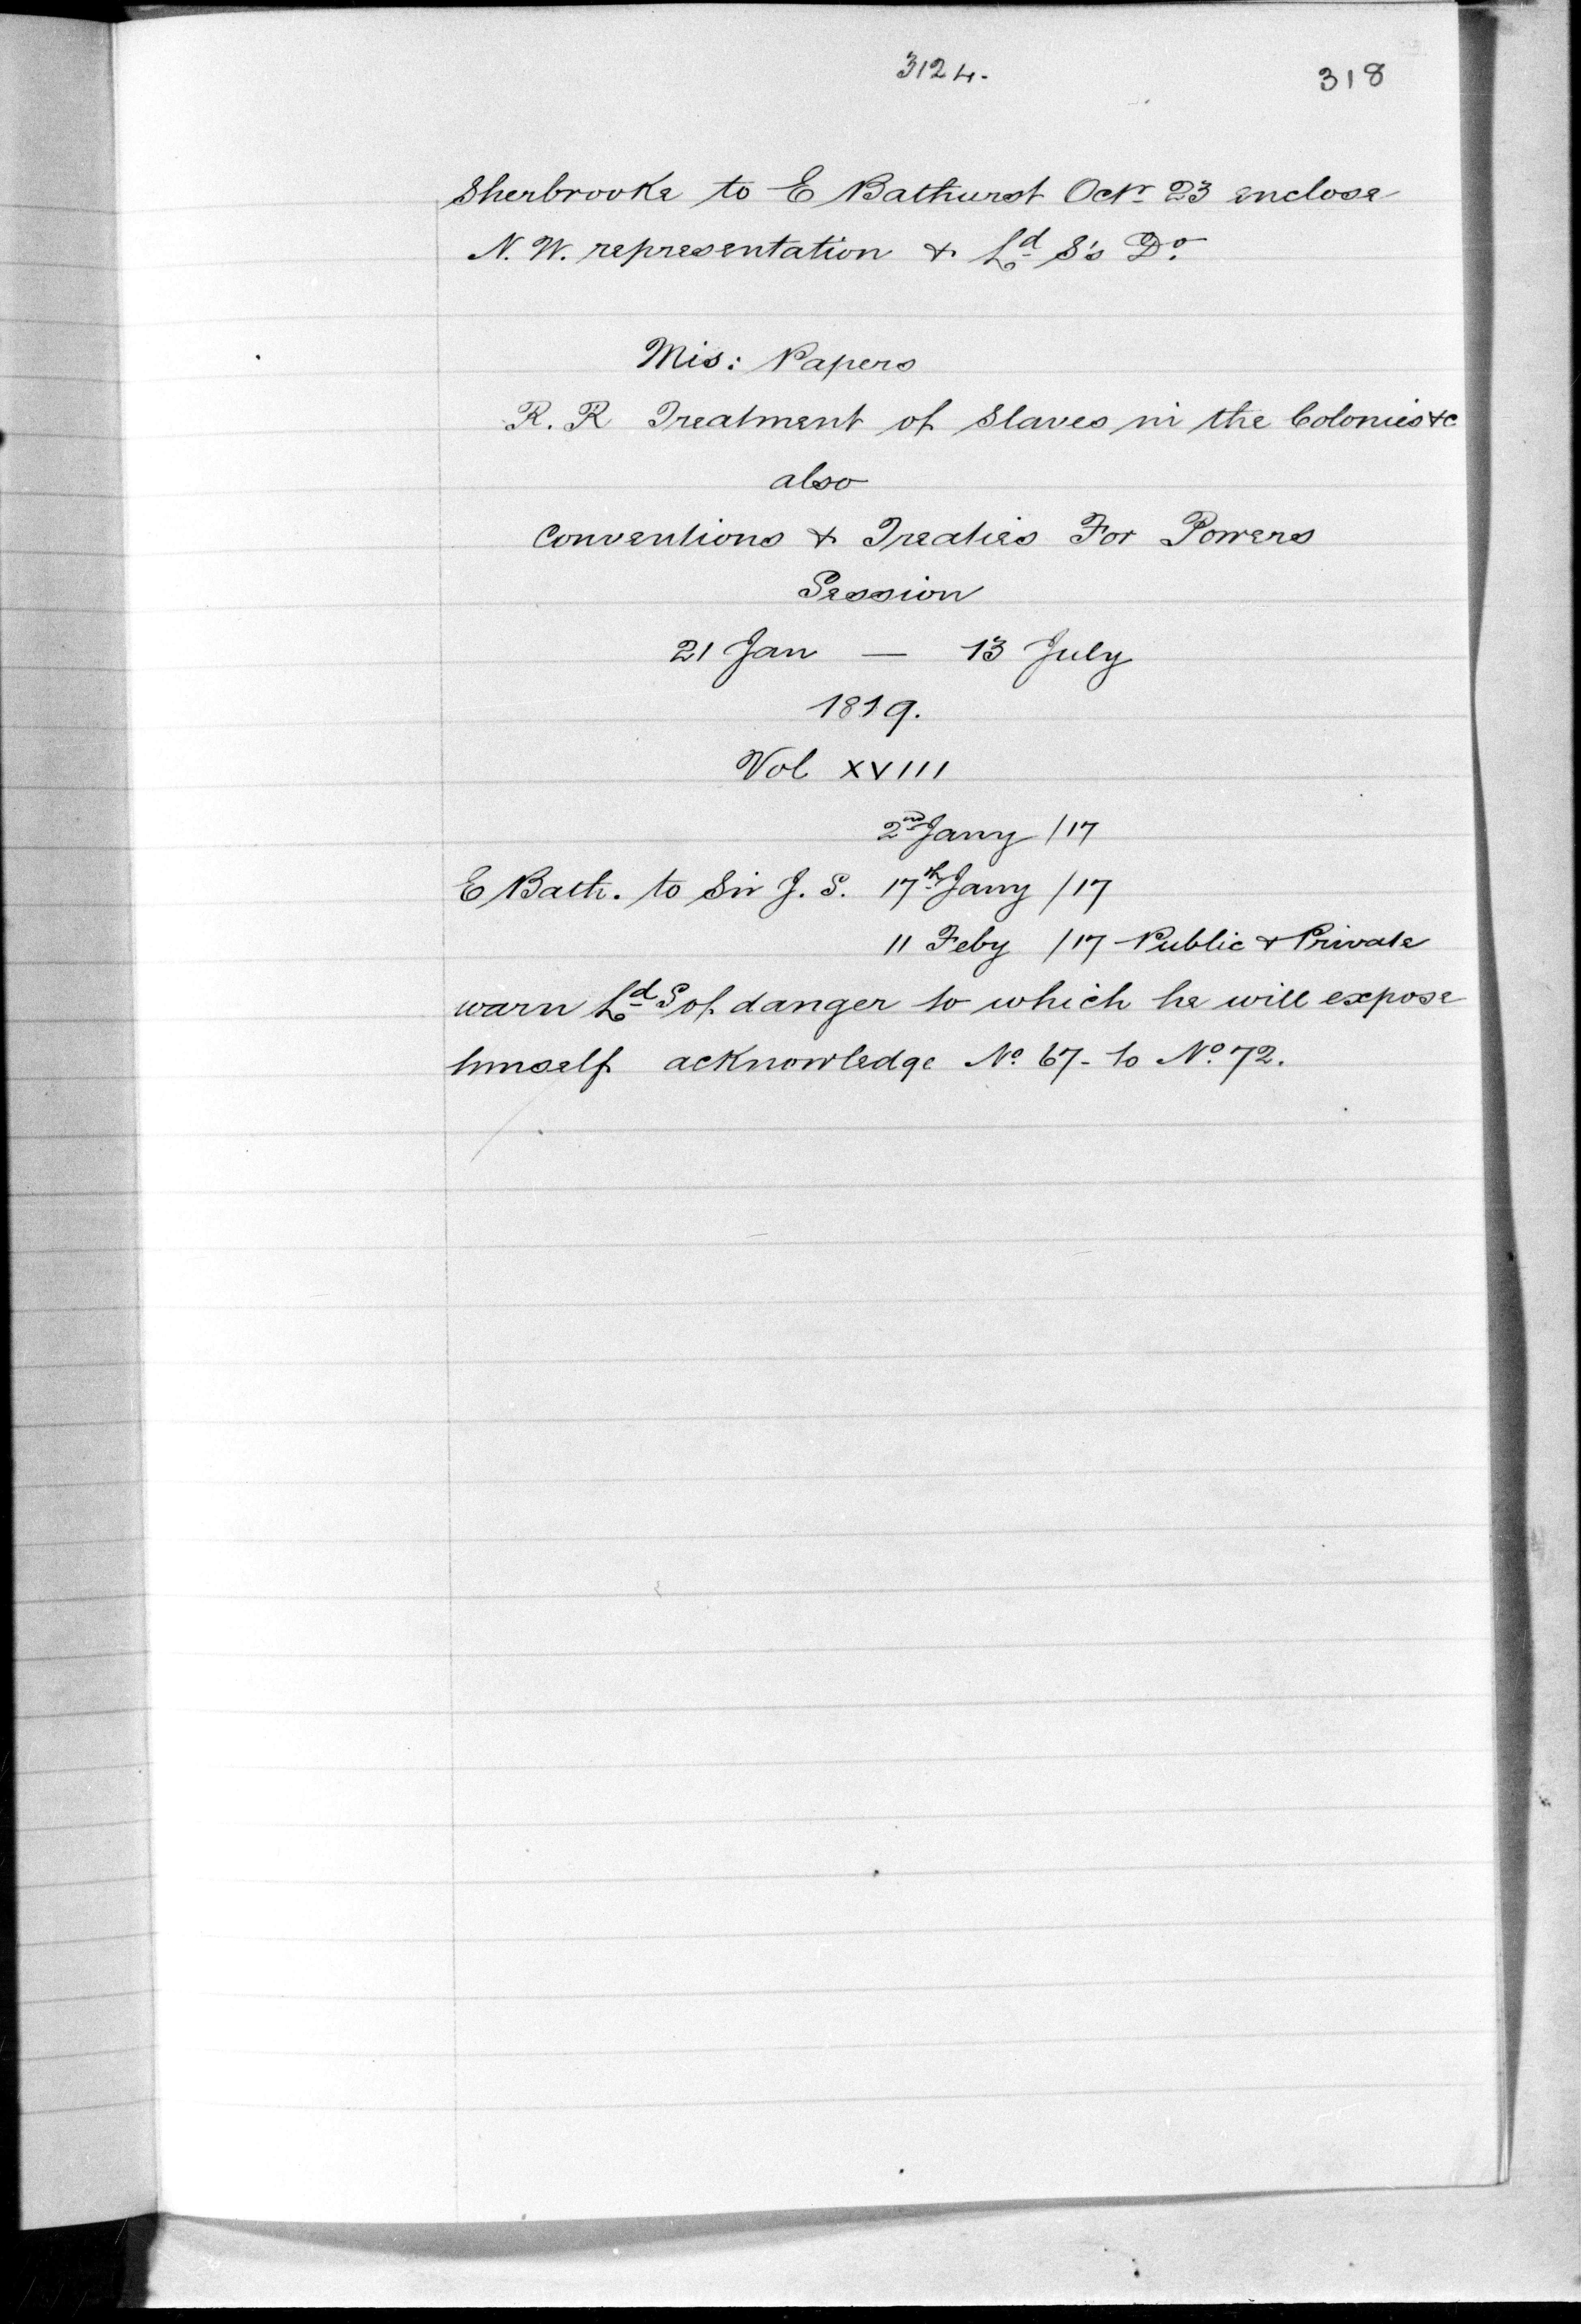 3124. 318
Sherbrooke to E Bathurst Octr 23 enclose
N. W. representation & Ld S's Do.
Mis: Papers
R. R Treatment of Slaves in the Colonies &c
also
Conventions & Treaties For Powers
Session
21 Jan — 13 July
1819.
Vol XVIII
2nd Jany /17
E Bath. to Sir J. S. 17th Jany /17
11 Feby /17 Public & Private
warn Ld S of danger to which he will expose
himself acknowledge No. 67 - to No. 72.